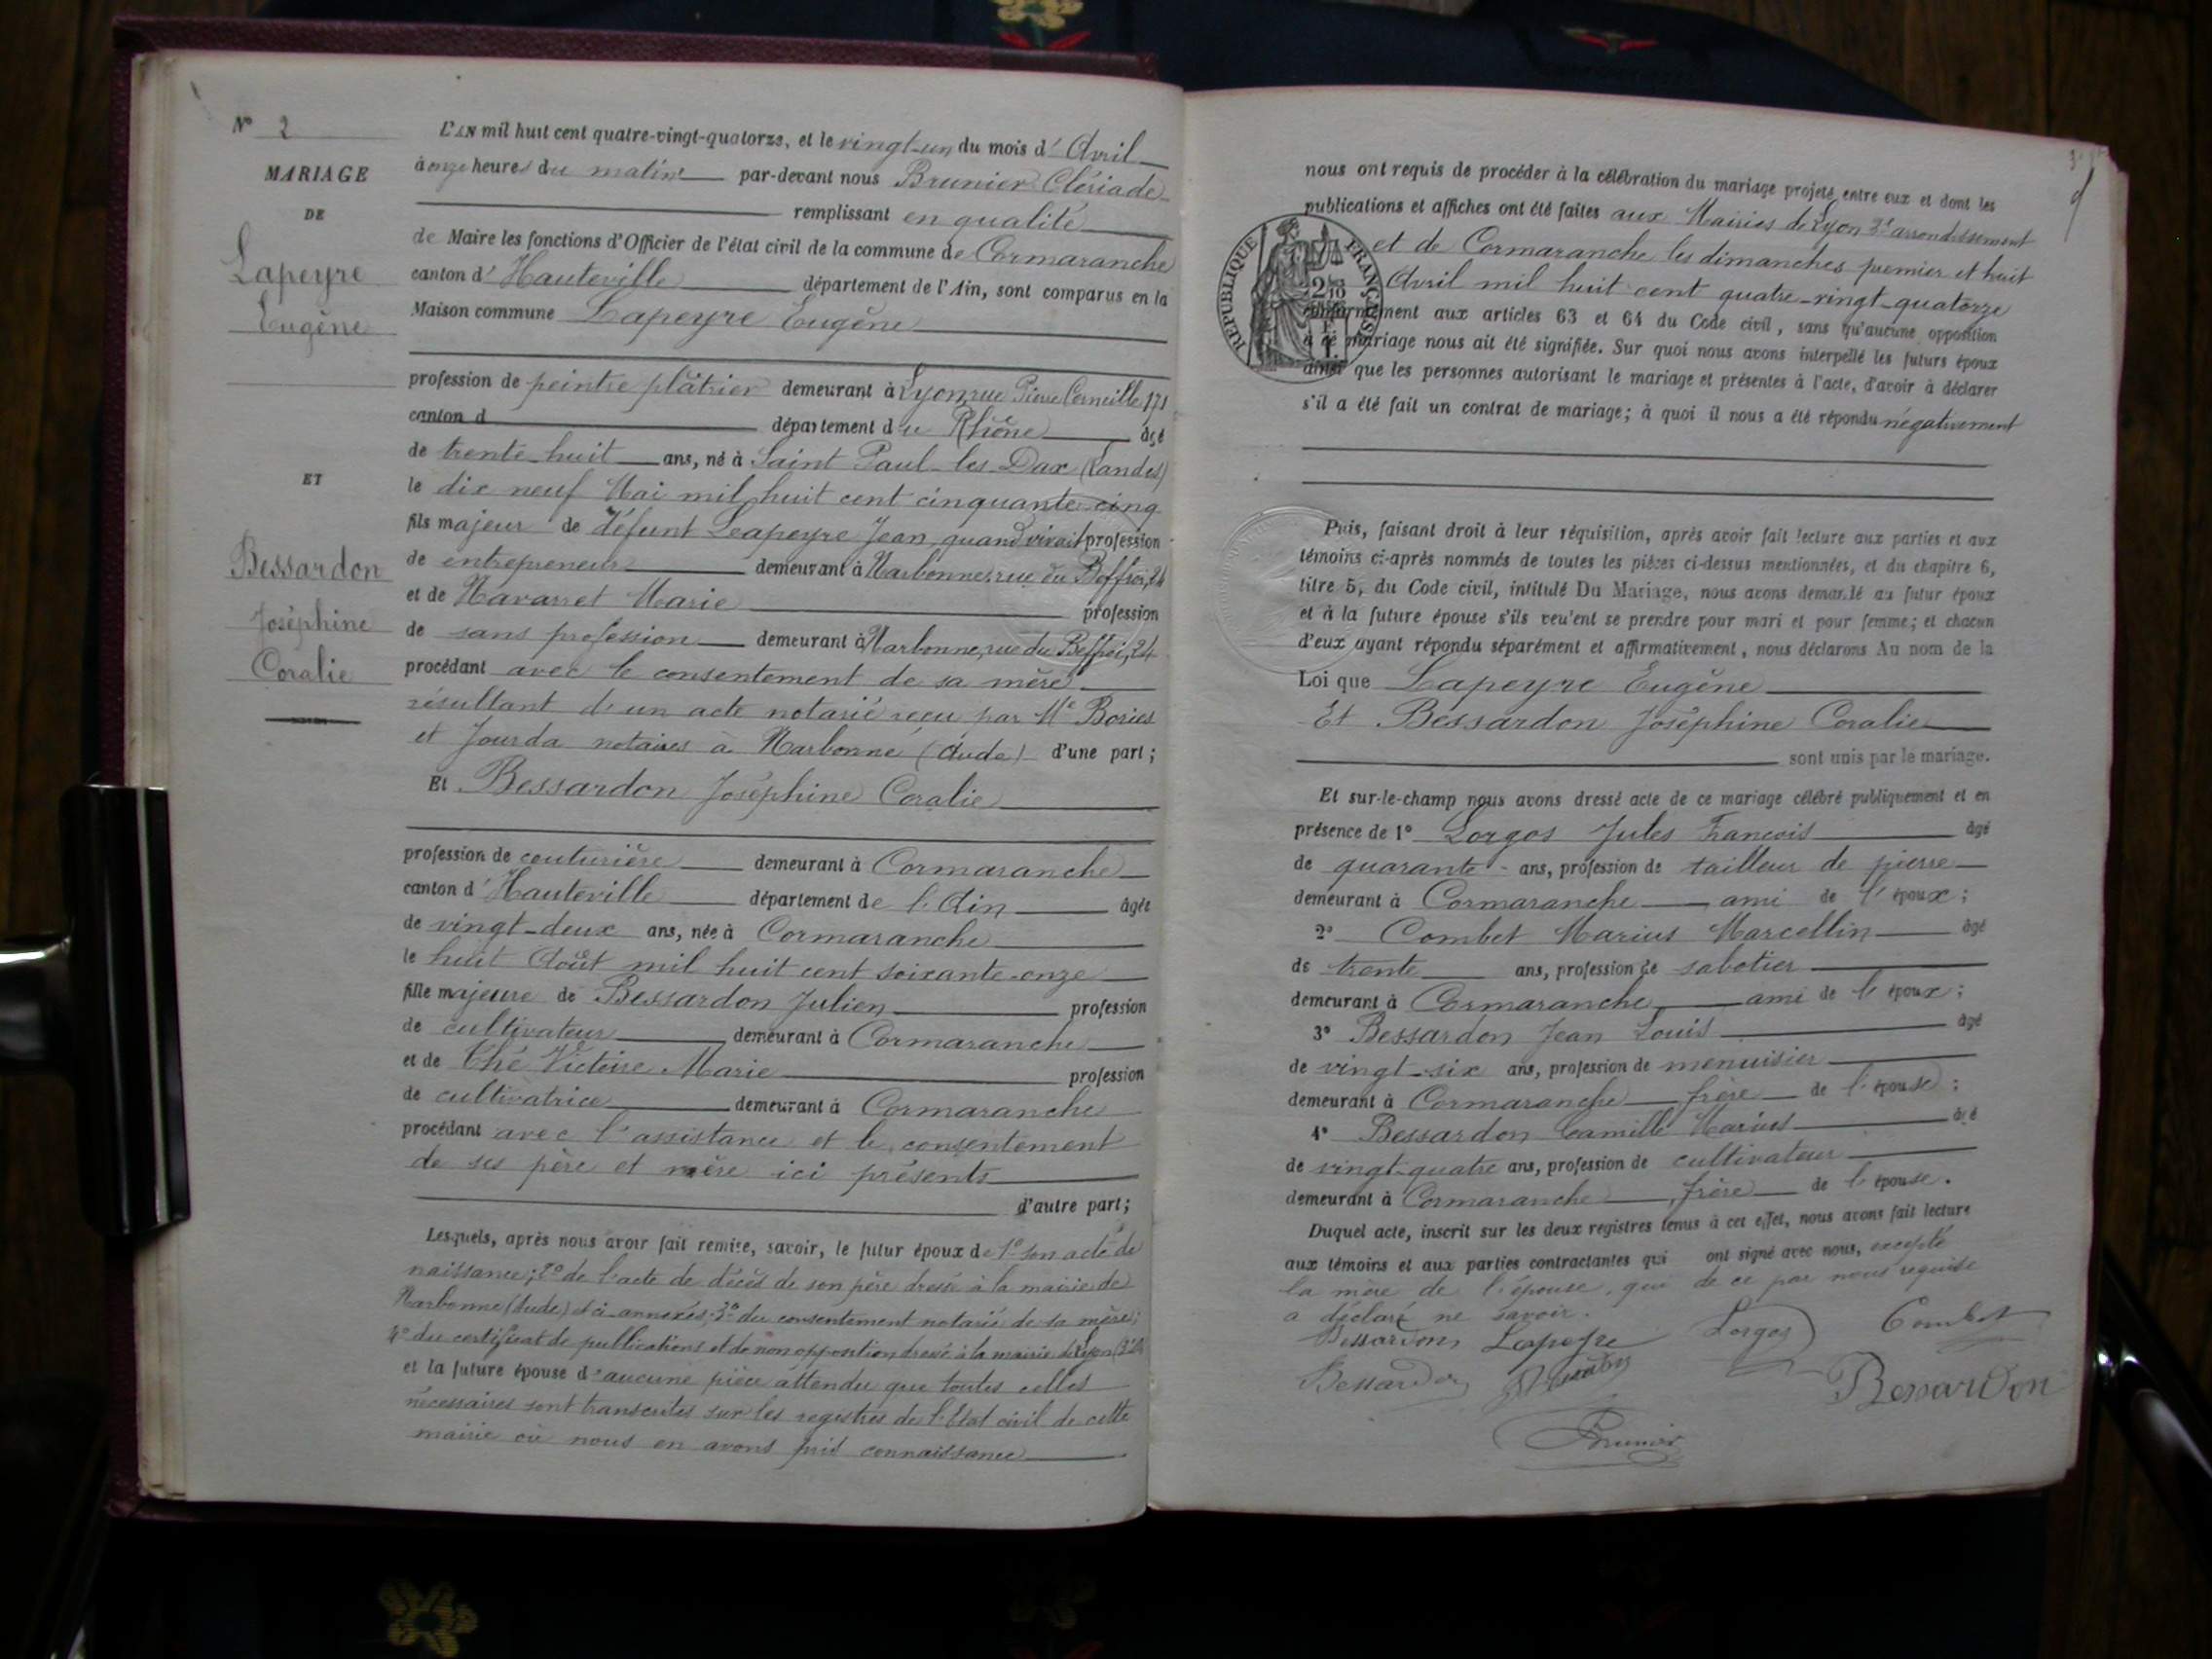 N° 2
MARIAGE
DE
Lapeyre
Eugène
ET
Bessardon
Joséphine
Coralie
L'AN mil huit cent quatre-vingt-quatorze, et le vingt-un du mois d'Avril
à onze heures du matin par-devant nous Brunier Clériade
remplissant en qualité
de Maire les fonctions d'Officier de l'état civil de la commune de Cormaranche
canton d'Hauteville département de l'Ain, sont comparus en la
Maison commune Lapeyre Eugène
profession de peintre plâtrier demeurant à Lyon, rue Pierre Corneille 171
canton d département du Rhône âgé
de trente-huit ans, né à Saint Paul-les-Dax (Landes)
le dix neuf Mai mil huit cent cinquante-cinq
fils majeur de défunt Lapeyre Jean, quand vivait profession
de entrepreneur demeurant à Narbonne, rue du Beffroi, 24
et de Navarret Marie profession
de sans profession demeurant à Narbonne, rue du Beffroi, 24
procédant avec le consentement de sa mère
résultant d'un acte notarié reçu par Me Bories
et Jourda notaires à Narbonne (Aude) d'une part;
Et Bessardon Joséphine Coralie
profession de couturière demeurant à Cormaranche
canton d'Hauteville département de l'Ain âgée
de vingt-deux ans, née à Cormaranche
le huit Août mil huit cent soixante-onze
fille majeure de Bessardon Julien profession
de cultivateur demeurant à Cormaranche
et de Ché Victoire Marie profession
de cultivatrice demeurant à Cormaranche
procédant avec l'assistance et le consentement
de ses père et mère ici présents
d'autre part;
Lesquels, après nous avoir fait remise, savoir, le futur époux de 1° son acte de
naissance; 2° de l'acte de décès de son père dressé à la mairie de
Narbonne (Aude) et ci-annexés; 3° du consentement notarié de sa mère;
4° du certificat de publications et de non opposition dressé à la mairie de Lyon
et la future épouse d'aucune pièce attendu que toutes celles
nécessaires sont transcrites sur les registres de l'Etat civil de cette
mairie où nous en avons pris connaissance
nous ont requis de procéder à la célébration du mariage projeté entre eux et dont les
publications et affiches ont été faites aux Mairies de Lyon 3e arrondissement
et de Cormaranche les dimanches premier et huit
Avril mil huit cent quatre-vingt-quatorze
conformément aux articles 63 et 64 du Code civil, sans qu'aucune opposition
à ce mariage nous ait été signifiée. Sur quoi nous avons interpellé les futurs époux
ainsi que les personnes autorisant le mariage et présentes à l'acte, d'avoir à déclarer
s'il a été fait un contrat de mariage; à quoi il nous a été répondu négativement
RÉPUBLIQUE FRANÇAISE
Puis, faisant droit à leur réquisition, après avoir fait lecture aux parties et aux
témoins ci-après nommés de toutes les pièces ci-dessus mentionnées, et du chapitre 6,
titre 5, du Code civil, intitulé Du Mariage, nous avons demandé au futur époux
et à la future épouse s'ils veulent se prendre pour mari et pour femme; et chacun
d'eux ayant répondu séparément et affirmativement, nous déclarons Au nom de la
Loi que Lapeyre Eugène
Et Bessardon Joséphine Coralie
sont unis par le mariage.
Et sur-le-champ nous avons dressé acte de ce mariage célébré publiquement et en
présence de 1° Lorgos Jules Francois âgé
de quarante ans, profession de tailleur de pierre
demeurant à Cormaranche ami de l'époux;
2° Combet Marius Marcellin âgé
de trente ans, profession de sabotier
demeurant à Cormaranche ami de l'époux;
3° Bessardon Jean Louis âgé
de vingt-six ans, profession de menuisier
demeurant à Cormaranche frère de l'épouse;
4° Bessardon Camille Marius âgé
de vingt-quatre ans, profession de cultivateur
demeurant à Cormaranche, frère de l'épouse.
Duquel acte, inscrit sur les deux registres tenus à cet effet, nous avons fait lecture
aux témoins et aux parties contractantes qui ont signé avec nous, excepté
la mère de l'épouse, qui de ce par nous requise
a déclaré ne savoir.
Bessardon Lapeyre Lorgos Combet
Bessardon Bessardon
Brunier